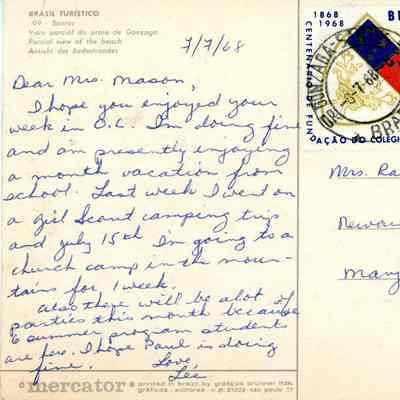 BRASIL TURÍSTICO
09 - Santos
Vista parcial da praia do Gonzaga
Parcial view of the beach
Ansicht des Badestrandes
7/7/68
Dear Mrs. Mason,
I hope you enjoyed your
week in O.C. I'm doing fine
and am presently enjoying
a month vacation from
school. Last week I went on
a Girl Scout camping trip
and July 15th I'm going to a
church camp in the moun-
tains for 1 week.
Also there will be alot of
parties this month because
6 summer program students
are here. I hope Paul is doing
fine. Love,
Lee
mercator
printed in brazil by gráficos brunner ltda.
gráficos, editores
são paulo
1868
1968
CENTENÁRIO DE FUND
AÇÃO DO COLÉGIO
BR
Mrs. Ra
Newar
Mary